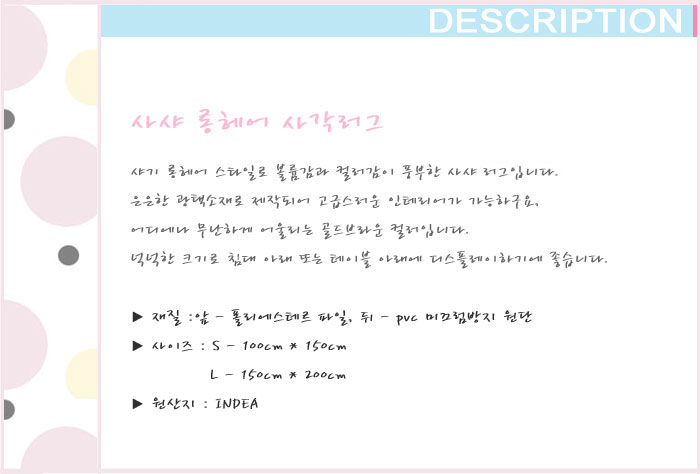 DESCRIPTION
사샤 롱헤어 사각러그
샤기 롱헤어 스타일로 볼륨감과 컬러감이 풍부한 사샤 러그입니다.
은은한 광택소재로 제작되어 고급스러운 인테리어가 가능하구요,
어디에나 무난하게 어울리는 골드브라운 컬러입니다.
넉넉한 크기로 침대 아래 또는 테이블 아래에 디스플레이하기에 좋습니다.
▶ 재질 :앞 - 폴리에스테르 파일, 뒤 - pvc 미끄럼방지 원단
▶ 사이즈 : S - 100cm * 150cm
L - 150cm * 200cm
▶ 원산지 : INDEA